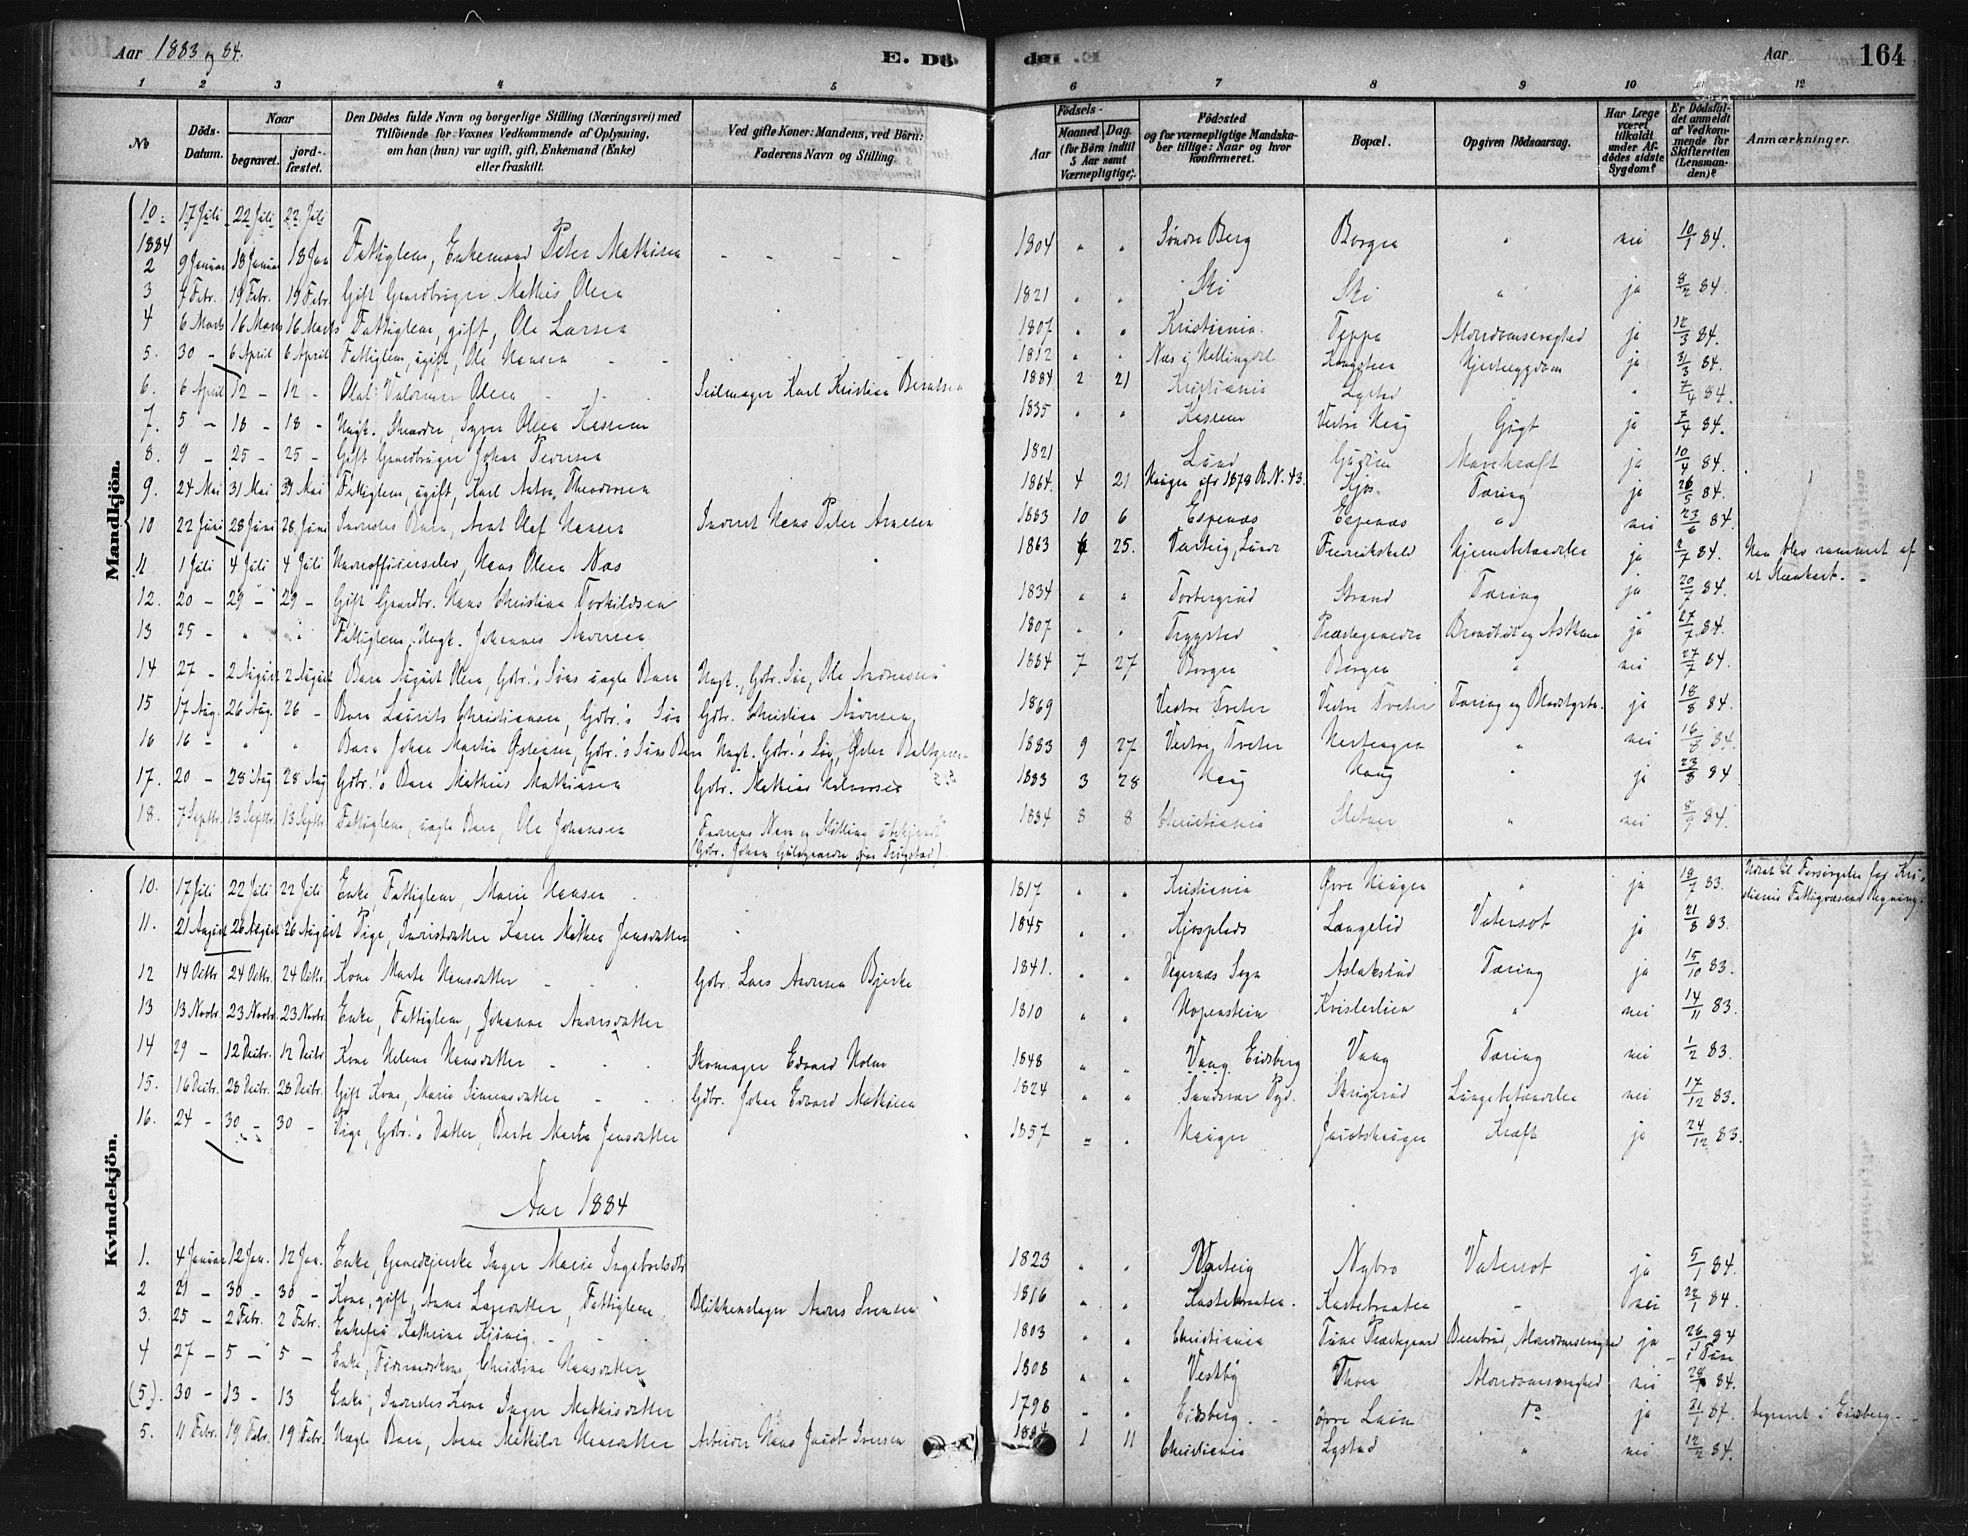 Aar 1883 og 84.
E. Dö
de.
Aar
164
1 2 3 4 5 6 7 8 9 10 11 12
No
Döds-Datum.
Naar
begravet.
jord-fæstet.
Den Dödes fulde Navn og borgerlige Stilling (Næringsvei) med
Tilföiende for Voxnes Vedkommende af Oplysning,
om han (hun) var ugift, gift, Enkemand (Enke)
eller fraskilt.
Ved gifte Koner: Mandens, ved Börn:
Faderens Navn og Stilling.
Födsels-
Aar
Maaned. Dag.
(for Börn indtil
5 Aar samt
Værnepligtige).
Födested
og for værnepligtige Mandska-
ber tillige: Naar og hvor
konfirmeret.
Bopæl.
Opgiven Dödsaarsag.
Har Læge
været
tilkaldt
under Af-
dödes sidste
Sygdom?
Er Dödsfal-
det anmeldt
af Vedkom-
mende for
Skifteretten
(Lensman-
den)?
Anmærkninger.
Mandkjön.
10. 17 Juli 22 Juli 22 Juli
1884
2 9 Januar 18 Januar 18 Jan Fattiglem, Enkemand Peter Mathisen 1804 " " Söndre Berg Borgen " nei 10/1 84.
3 7 Febr. 19 Febr. 19 Febr. Gift Gaardbruger Mathis Olsen 1821 " " Ski Ski " ja 8/2 84.
4 6 Marts 16 Marts 16 Marts Fattiglem, gift, Ole Larsen 1807 " " Kristiania Teppa Alderdomssvaghed ja 12/3 84.
5. 30 - 6 April 6 April Fattiglem, ugift, Ole Hansen 1812 " " Næs i Hallingdal Hjertesygdom ja 31/3 84.
6. 6 April 12 - 12 - Olaf Valdemar Olsen Seilmager Karl Kristian Berntsen 1884 2 21 Kristiania Lystad " 7/4 84.
7. 5 - 18 - 18 - Ungk. Skrædder, Syver Olsen 1835 " " Vestre Haug Gigt ja 7/4 84.
8. 9 - 25 - 25 - Gift Gaardbruger Johan Pedersen 1821 Lund Mavekræft ja 10/4 84.
9. 24 Mai 31 Mai 31 Mai Fattiglem, ugift, Karl Anton Theodorsen 1864. 4 21 Haugen 1879 R. N. 43. Kjos Tæring ja 26/5 84.
10 22 Juni 28 Juni 28 Juni Inderstes Barn, Arnt Olaf Hansen Inderst Hans Peter Arnesen 1883 10 6 Espenæs Espenæs " nei 23/6 84.
11. 1 Juli 4 Juli 4 Juli Underofficerselev, Hans Olsen Næs 1863 6 25. Varteig, Lunde Fredrikshald Hjernebetændelse ja 2/7 84. Han blev rammet af
et Steenkast.
12. 20 - 29 - 29 - Gift Gaardbr. Hans Christian Torkildsen 1834 " " Torbergrud Strand Tæring ja 20/7 84.
13 25 - " " Fattiglem, Ungk. Johannes Andersen 1807 " " Trygstad Præstegaarden ja 27/7 84.
14 27 - 2 August 2 August Barn August Olsen, Gdbr.'s Söns uægte Barn Ungk., Gdbr. Sön, Ole Andersen 1884 7 27 Borgen Borgen " nei 27/7 84.
15 17 Aug. 26 Aug. 26 - Barn Laurits Christiansen, Gdbr.'s Sön Gdbr. Christian Andersen 1869 Vestre Tveter Vestre Tveter Tæring og Blodstyrtn. ja 18/8 84.
16 16 - " " Barn Johan Martin Östensen, Gdbr.'s Söns Barn Ungk. Gdbr.'s Sön, Östen 1883 9 27 Vestre Tveter " nei 16/8 84.
17. 20 - 28 Aug 28 Aug Gdbr.'s Barn Mathias Mathiasen Gdbr. Mathias Halvorsen 1883 3 28 Haug Haug " ja 23/8 84
18. 7 Septbr. 13 Septbr. 13 Septbr. Fattiglem, uægte Barn, Ole Johansen Faderens Navn og Stilling ubekjendt
(Gdbr. Johan Trögstad) 1884 8 8 Christiania Sletner " nei 8/9 84.
Kvindekjön.
10. 17 Juli 22 Juli 22 Juli Enke, Fattiglem, Marie Hansen 1817 " " Kristiania Övre Haugen " ja 18/7 83. til Forsörgelse for Kri-
stiania Fattigvæsens Regning.
11. 21 August 26 August 26 August Pige, Inderstdatter Karen Mathea Jensdatter 1845 " " Kjosplads Langelid Vatersot ja 21/8 83.
12 14 Octbr. 24 Octbr. 24 Octbr. Kone Marte Hansdatter Gdbr. Lars Andersen Bjerke 1841. " " Degernæs Sogn Aslakstrud Tæring ja 15/10 83.
13 13 Novbr. 23 Novbr. 23 Novbr. Enke, Fattiglem, Johanne Andersdatter 1810 " " " nei 14/11 83.
14 29 - 12 Decbr. 12 Decbr. Kone Helene Hansdatter Skomager Edvard Holm 1848 " " Vang, Eidsberg Vang Tæring nei 1/12 83.
15. 16 Decbr. 28 Decbr. 28 Decbr. Gift Kone, Marie Simensdatter Gdbr. Johan Edvard Mathisen 1824 " " Lungebetændelse nei 17/12 83.
16. 24 - 30 - 30 - Pige, Gdbr.'s Datter, Berte Marta Jensdatter 1857 " " Haugen Jacobshaugen Kræft ja 24/12 83.
Aar 1884
1. 4 Januar 12 Jan. 12 Jan. Enke, Gaardbrugerske Inger Marie Ingebretsdtr 1823 " " Varteig Nybro Vatersot ja 5/1 84.
2 21 - 30 - 30 - Kone, gift, Anne Larsdatter, Fattiglem Blikkenslager Anders Svensen 1816 " " Kastebraaten. Kastebraaten " nei 22/1 84.
3. 25 - 2 Febr. 2 Febr. Enkefru Kathrine 1803 " " Christiania Tune Præstegaard Alderdomssvaghed ja 26/1 84
i Tune
4 27 - 5 - 5 - Enke, Christine Hansdatter 1808 " " Vestby Alderdomssvaghed nei 28/1 84.
(5). 30 - 13 - 13 Enke, Inderstes Kone Inger Mathisdatter 1798 " " Eidsberg. övre Lein Do ja 31/1 84. begravet i Eidsberg.
5. 11 Febr. 19 Febr. 19 Febr. Uægte Barn, Anne Mathilde Hansdatter Arbeider Hans Jacob Iversen 1884 1 11 Christiania Lystad " nei 12/2 84.